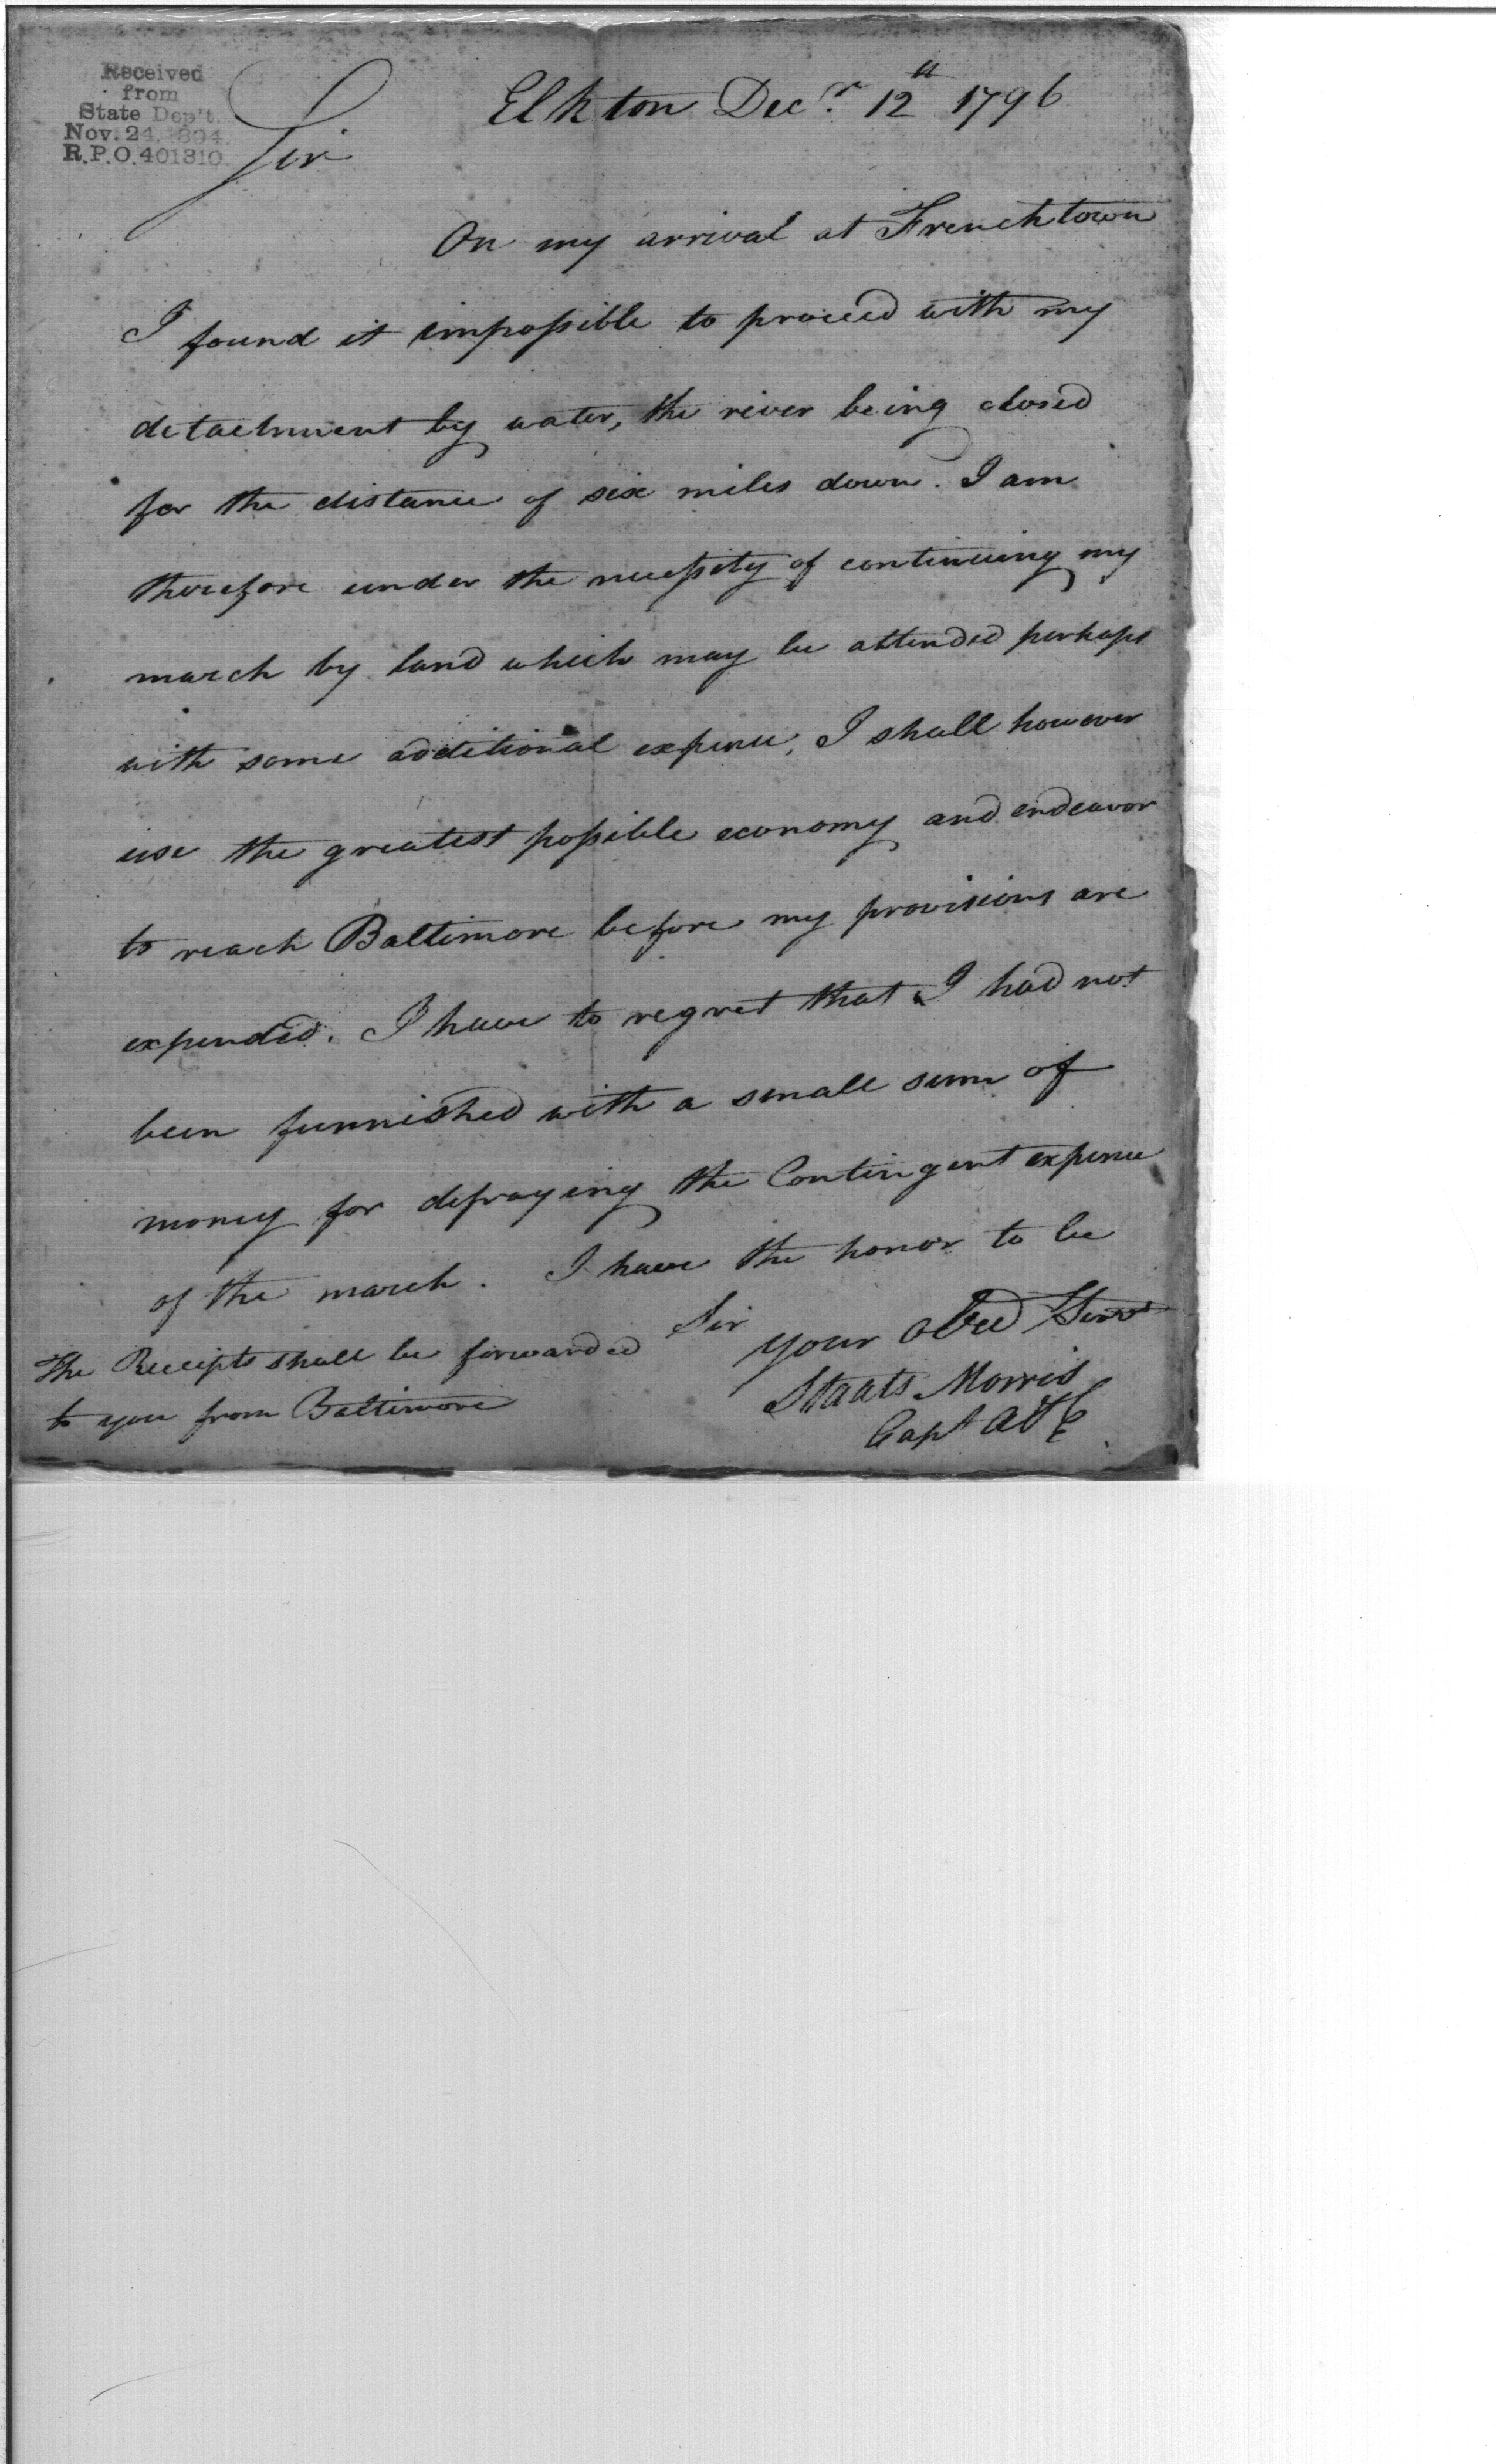 Received
from
State Dep't.
Nov. 24, 1894.
R.P.O. 401310.
Elkton Decr. 12th 1796
Sir
On my arrival at Frenchtown
I found it impossible to proceed with my
detachment by water, the river being closed
for the distance of six miles down. I am
therefore under the necessity of continuing my
march by land which may be attended perhaps
with some additional expence, I shall however
use the greatest possible economy and endeavor
to reach Baltimore before my provisions are
expended. I have to regret that I had not
been furnished with a small sum of
money for defraying the Contingent expence
of the march. I have the honor to be
Sir
your Obed Servt
Staats Morris
Capt A&E
The Receipts shall be forwarded
to you from Baltimore